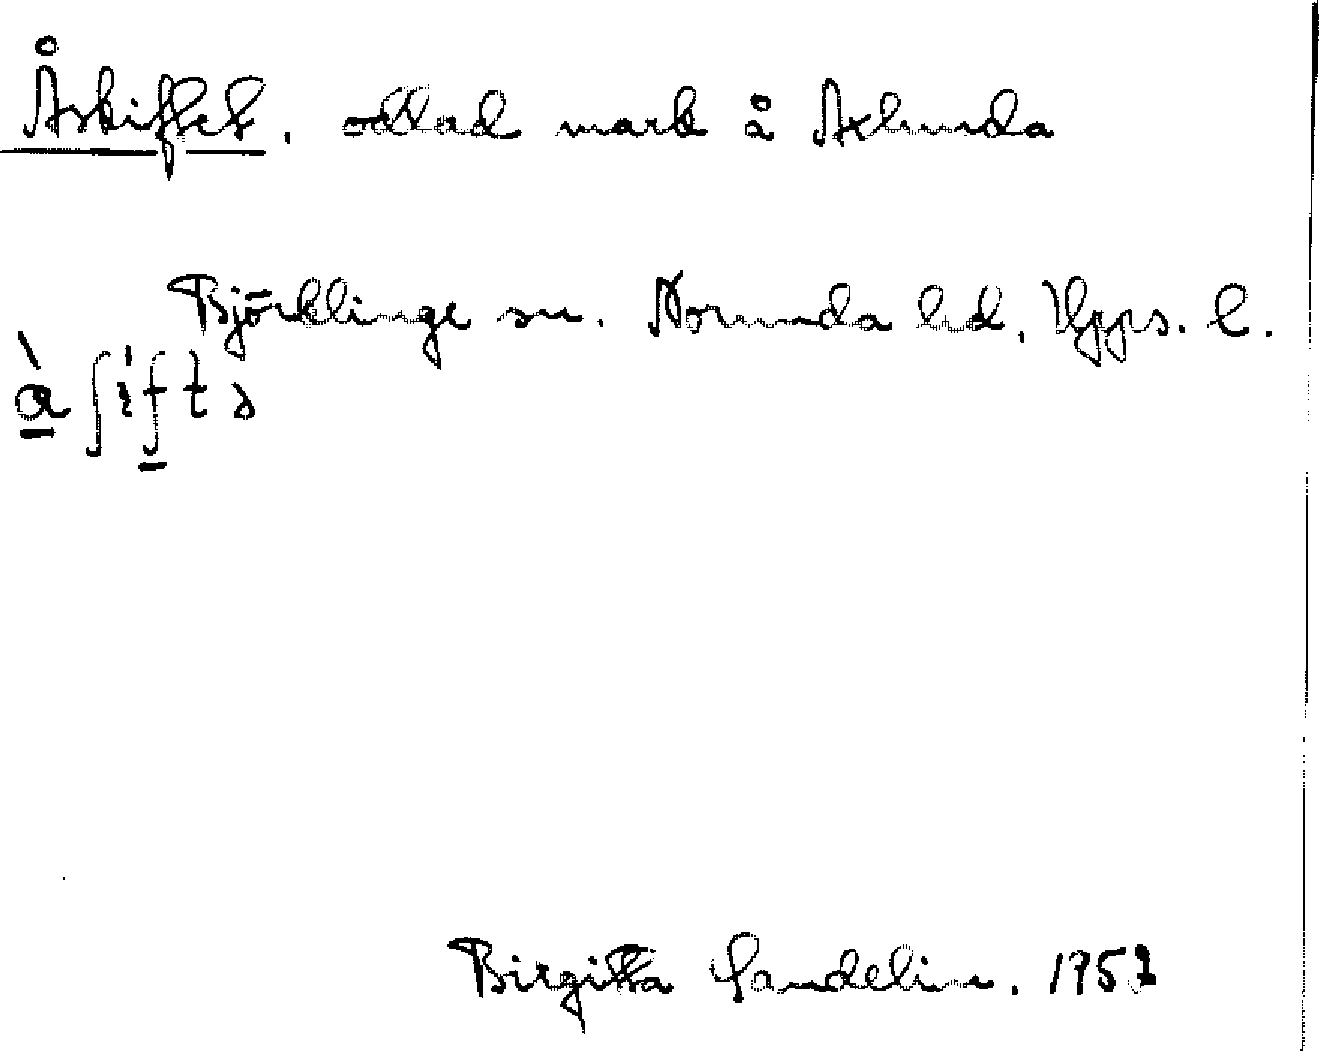 Åskiftet. odlad mark å Axlunda
Björklinge sn. Norunda hd, Upps. l.
à ʃiftə
Birgitta Sandelin. 1952